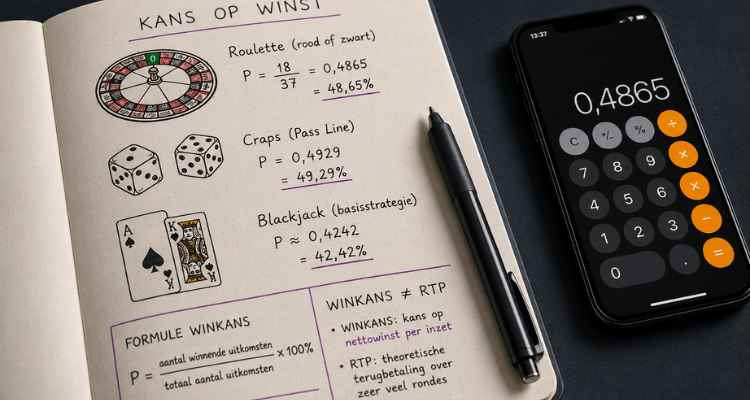 KANS OP WINST
Roulette (rood of zwart)
P = 18/37 = 0,4865
= 48,65%
Craps (Pass Line)
P = 0,4929
= 49,29%
Blackjack (basisstrategie)
P ≈ 0,4242
= 42,42%
FORMULE WINKANS
P = aantal winnende uitkomsten / totaal aantal uitkomsten × 100%
WINKANS ≠ RTP
• WINKANS: kans op
nettowinst per inzet
• RTP: theoretische
terugbetaling over
zeer veel rondes
0
A
K
K
13:37
0,4865
C +/- % ÷
7 8 9 ×
4 5 6 ×
1 2 3 −
0 . =